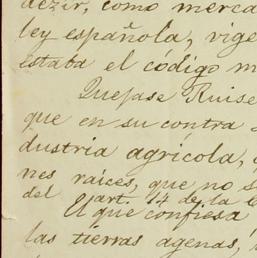 dezir, como merca
ley española, vige
estaba el código m
Quejase Ruise
que en su contra
dustria agrícola,
nes raíces, que no s
del art. 14 de la
El que confiesa
las tierras agenas,